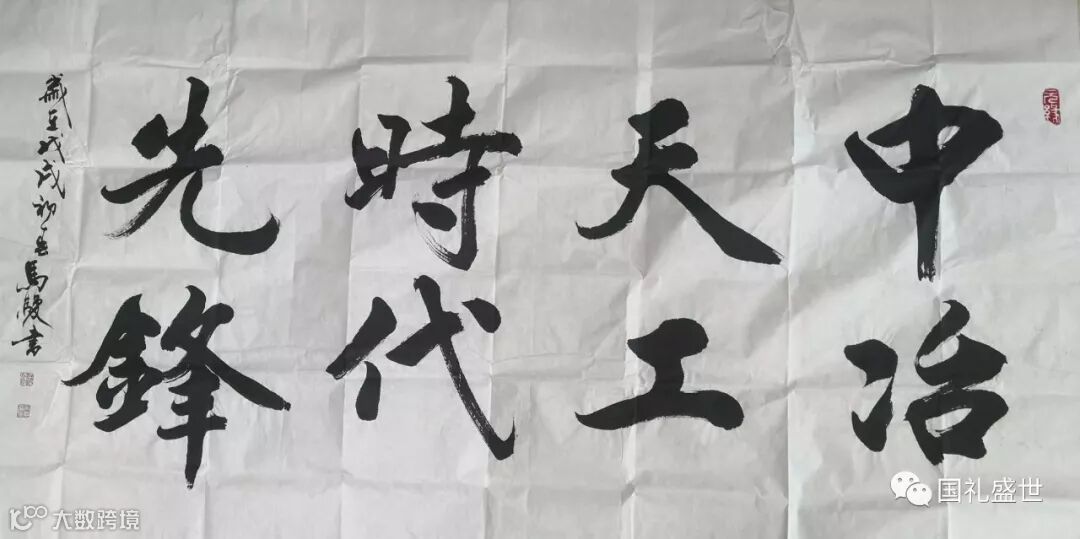 中冶
天工
時代
先鋒
歲在戊戌初春馬駿書
国礼盛世
大数跨境